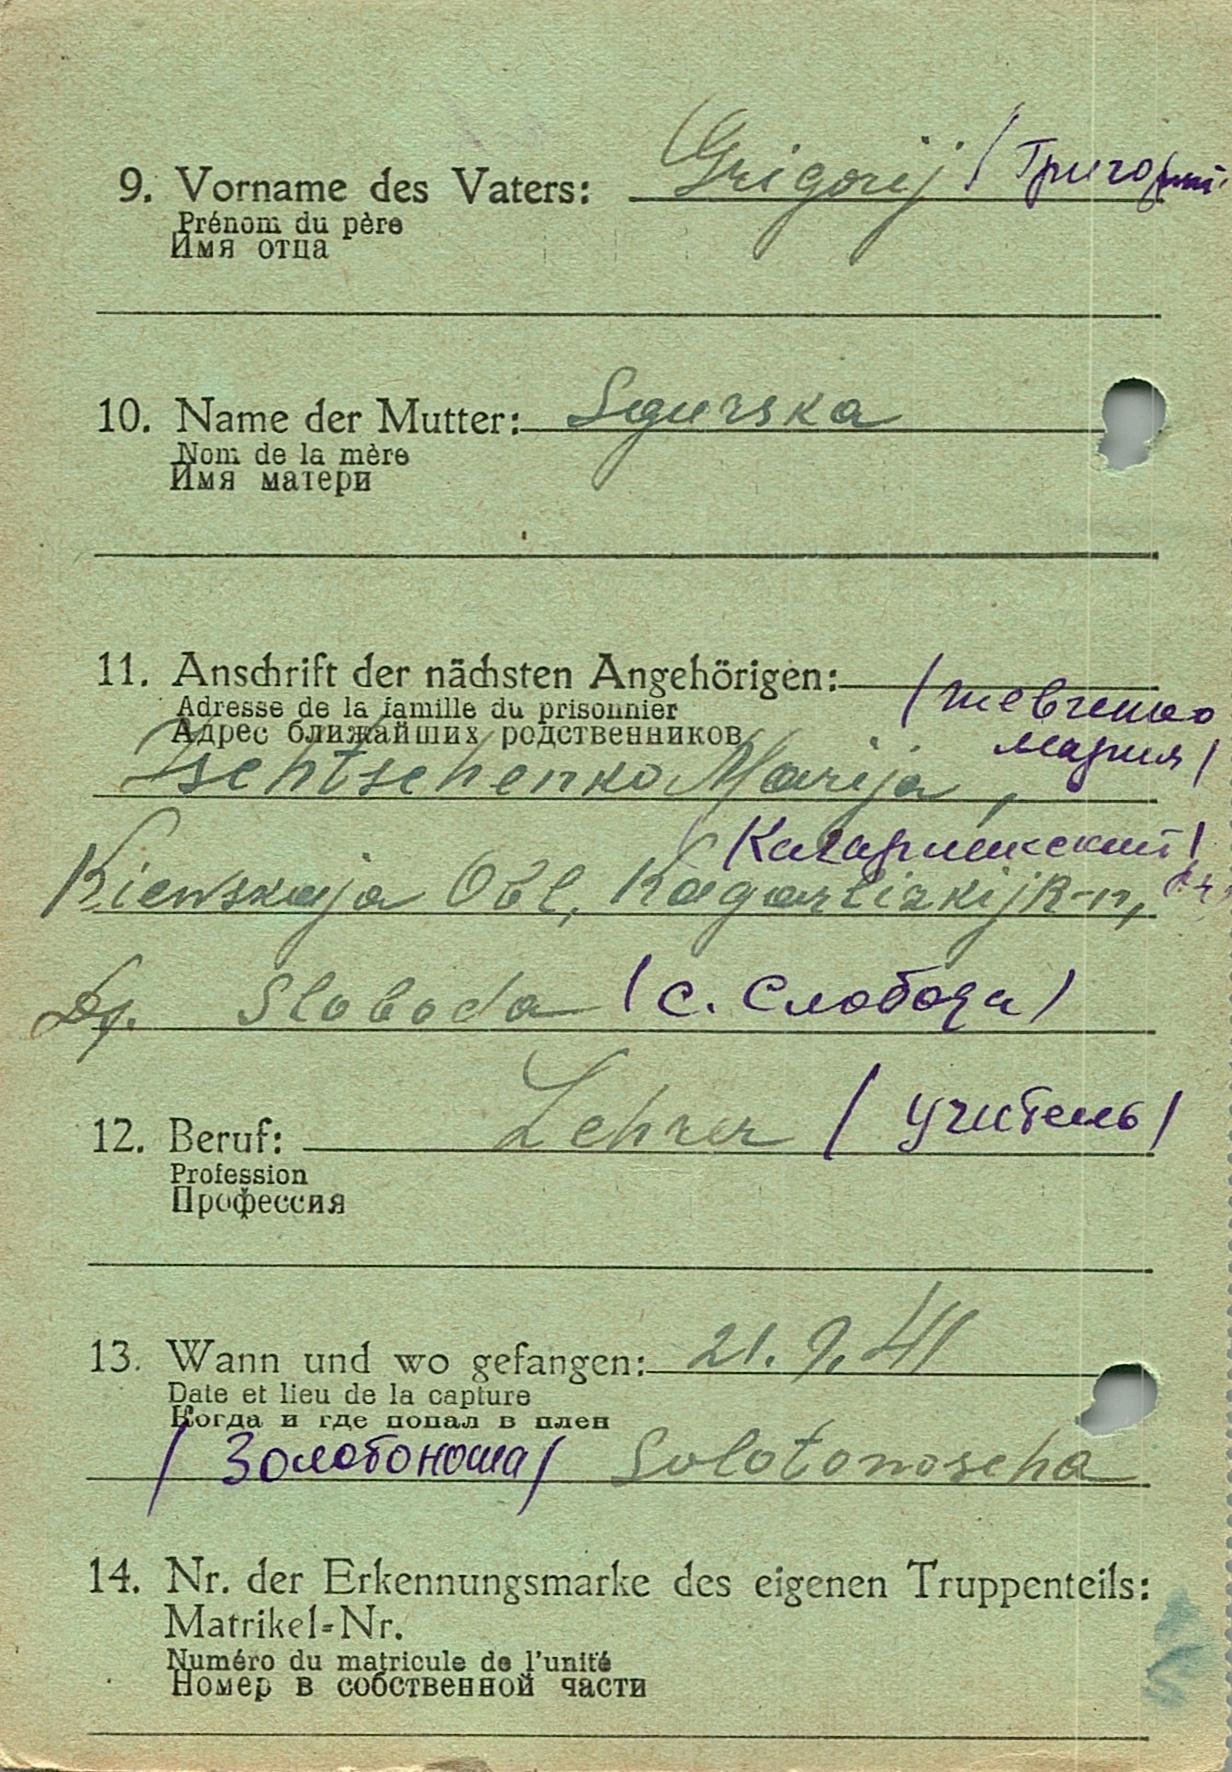 9. Vorname des Vaters: Grigorij / Григорий
Prénom du père
Имя отца
10. Name der Mutter: Sgurska
Nom de la mère
Имя матери
11. Anschrift der nächsten Angehörigen: / шевченко
Adresse de la famille du prisonnier
Адрес ближайших родственников
мария /
Marija,
/ Кагарликский /
Kiewskaja Obl, Kagarlizkij R-n,
Df. Sloboda ( с. Слобода )
12. Beruf: Lehrer / учитель /
Profession
Профессия
13. Wann und wo gefangen: 21. 9. 41
Date et lieu de la capture
Когда и где попал в плен
/ Золотоноша / Solotonoscha
14. Nr. der Erkennungsmarke des eigenen Truppenteils:
Matrikel-Nr.
Numéro du matricule de l'unité
Номер в собственной части